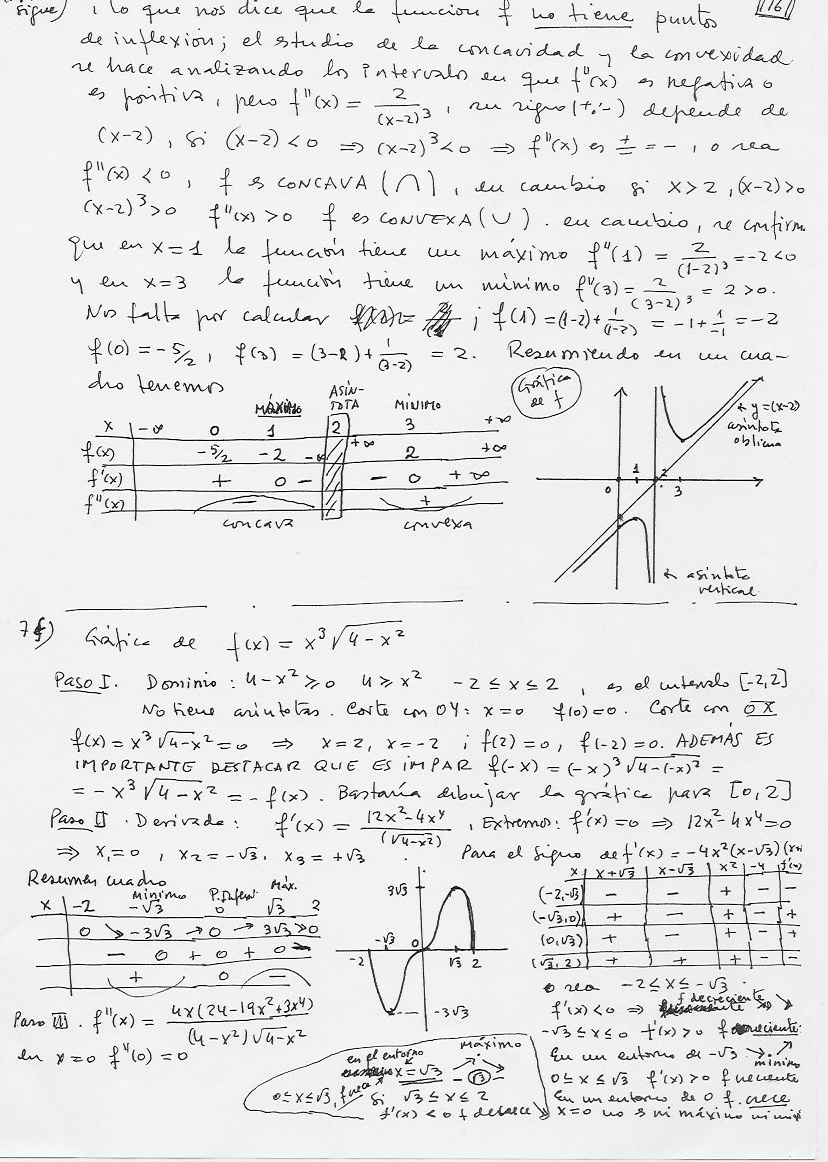 sigue) , lo que nos dice que la función f no tiene puntos
116
de inflexión; el estudio de la concavidad y la convexidad
se hace analizando los intervalos en que f"(x) es negativa o
es positiva, pero f"(x) = 2/(x-2)³, su signo (+ó-) depende de
(x-2), si (x-2)<0 ⇒ (x-2)³<0 ⇒ f"(x) es +/- = -, o sea
f"(x)<0, f es CONCAVA (∩), en cambio si x>2, (x-2)>0
(x-2)³>0 f"(x)>0 f es CONVEXA (∪). en cambio, se confirma
que en x=1 la función tiene un máximo f"(1) = 2/(1-2)³ = -2<0
y en x=3 la función tiene un mínimo f"(3) = 2/(3-2)³ = 2>0.
Nos falta por calcular ; f(1) = (1-2)+1/(1-2) = -1+1/-1 = -2
f(0) = -5/2, f(3) = (3-2)+1/(3-2) = 2. Resumiendo en un cua-
dro tenemos
MÁXIMO ASÍN-TOTA MÍNIMO
x -∞ 0 1 2 3 +∞
f(x) -5/2 -2 -∞ +∞ 2 +∞
f'(x) + 0 - - 0 + ∞
f"(x) - +
concava convexa
Gráfica de f
y=(x-2)
asíntota
oblicua
0 1 2 3
asíntota
vertical
7f) Gráfica de f(x) = x³√4-x²
Paso I. Dominio: 4-x²≥0 4≥x² -2≤x≤2, es el intervalo [-2,2]
No tiene asíntotas. Corte con OY: x=0 f(0)=0. Corte con OX
f(x) = x³√4-x² = 0 ⇒ x=2, x=-2 ; f(2)=0, f(-2)=0. ADEMÁS ES
IMPORTANTE DESTACAR QUE ES IMPAR f(-x) = (-x)³√4-(-x)² =
= -x³√4-x² = -f(x). Bastaría dibujar la gráfica para [0,2]
Paso II. Derivada: f'(x) = 12x²-4x⁴/(√4-x²), Extremos: f'(x)=0 ⇒ 12x²-4x⁴=0
⇒ x₁=0, x₂=-√3, x₃=+√3. Para el signo de f'(x) = -4x²(x-√3)(x+
Resumen cuadro
Mínimo P. Inflex. Máx.
x -2 -√3 0 √3 2
0 ↘ -3√3 → 0 → 3√3 ↘ 0
- 0 + 0 + 0 -
+ 0 -
3√3
-2 -√3 0 √3 2
-3√3
x x+√3 x-√3 x² -4 f'(x)
(-2,-√3) - - + - -
(-√3,0) + - + - +
(0,√3) + - + - +
(√3,2) + + + - -
o sea -2≤x≤-√3
f'(x)<0 ⇒ f decreciente
-√3≤x≤0 f'(x)>0 f creciente.
En un entorno de -√3 mínimo
0≤x≤√3 f'(x)>0 f creciente
En un entorno de 0 f. crece
x=0 no es ni máximo ni mínim
Paso III. f"(x) = 4x(24-19x²+3x⁴)/(4-x²)√4-x²
en x=0 f"(0)=0
en el entorno Máximo
x=√3 √3
0≤x≤√3, f crece Si √3≤x≤2
f'(x)<0 f decrece